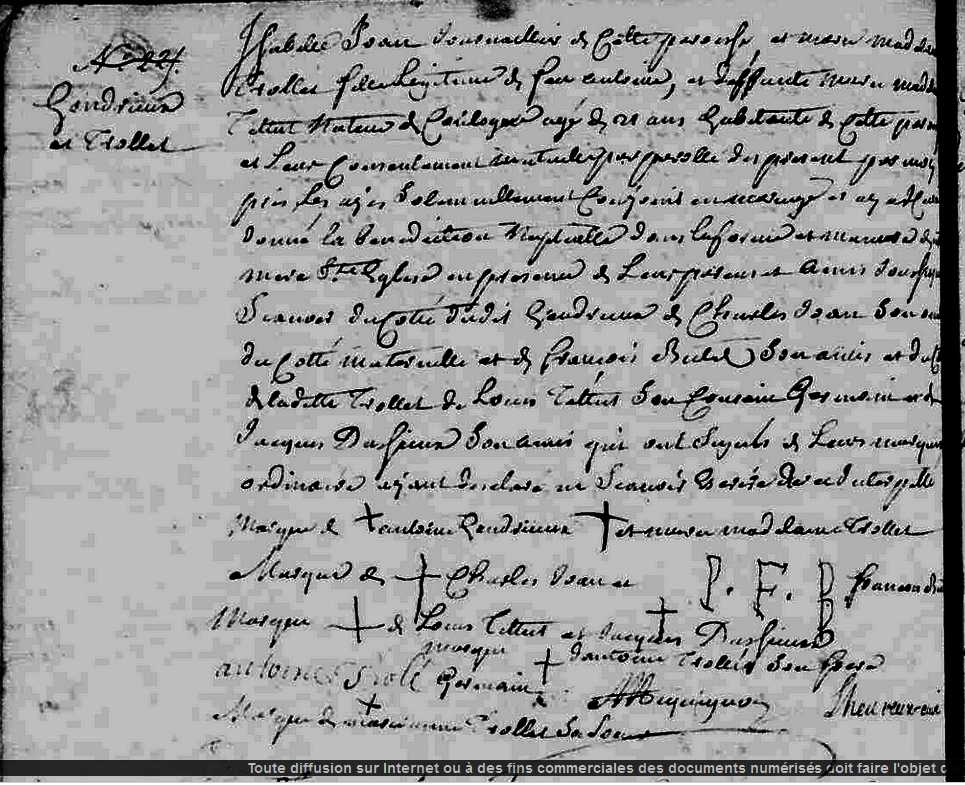 N.° 27.
Gondrieux
et Trollet
Isabelle Joan Journallier de Cette paroisse, et marie madelaine
Trollet fille Legitime de feu antoine, et deffunte Marie madelaine
Tettut Native de agé de 21 ans habitante de Cette paroisse
et Leur Consentement mutuelle par parolle de present par moy
pris Les ay Solemnellement Conjoint en mariage et ay
donné la benediction Nuptialle dans la forme et maniere de
mere Ste Eglise en presence de Leurs parens et Amis
Scavoir du Coté dudit Gondrieux de Charles Joan Son
du Cotté maternelle et de François Son amis et du Cotté
de ladette Trollet de Louis Tettut Son Cousin Germain et de
Jacques Dassieux Son amis qui ont Signés de Leurs marques
ordinaire ayant declaré ne Scavoir Ecrire de ce Interpellé
Marque de + antoine Gondrieux + et marie madelaine Trollet
Marque de + Charles Joan et P. F. B. francois
Marque + de Louis Tettut et Jacques + Dassieux
marque + dantoine Trollet Son frere
antoine Germain
Marque de + marianne Trollet Sa Soeur
Lheureux curé
Toute diffusion sur Internet ou à des fins commerciales des documents numérisés doit faire l'objet d